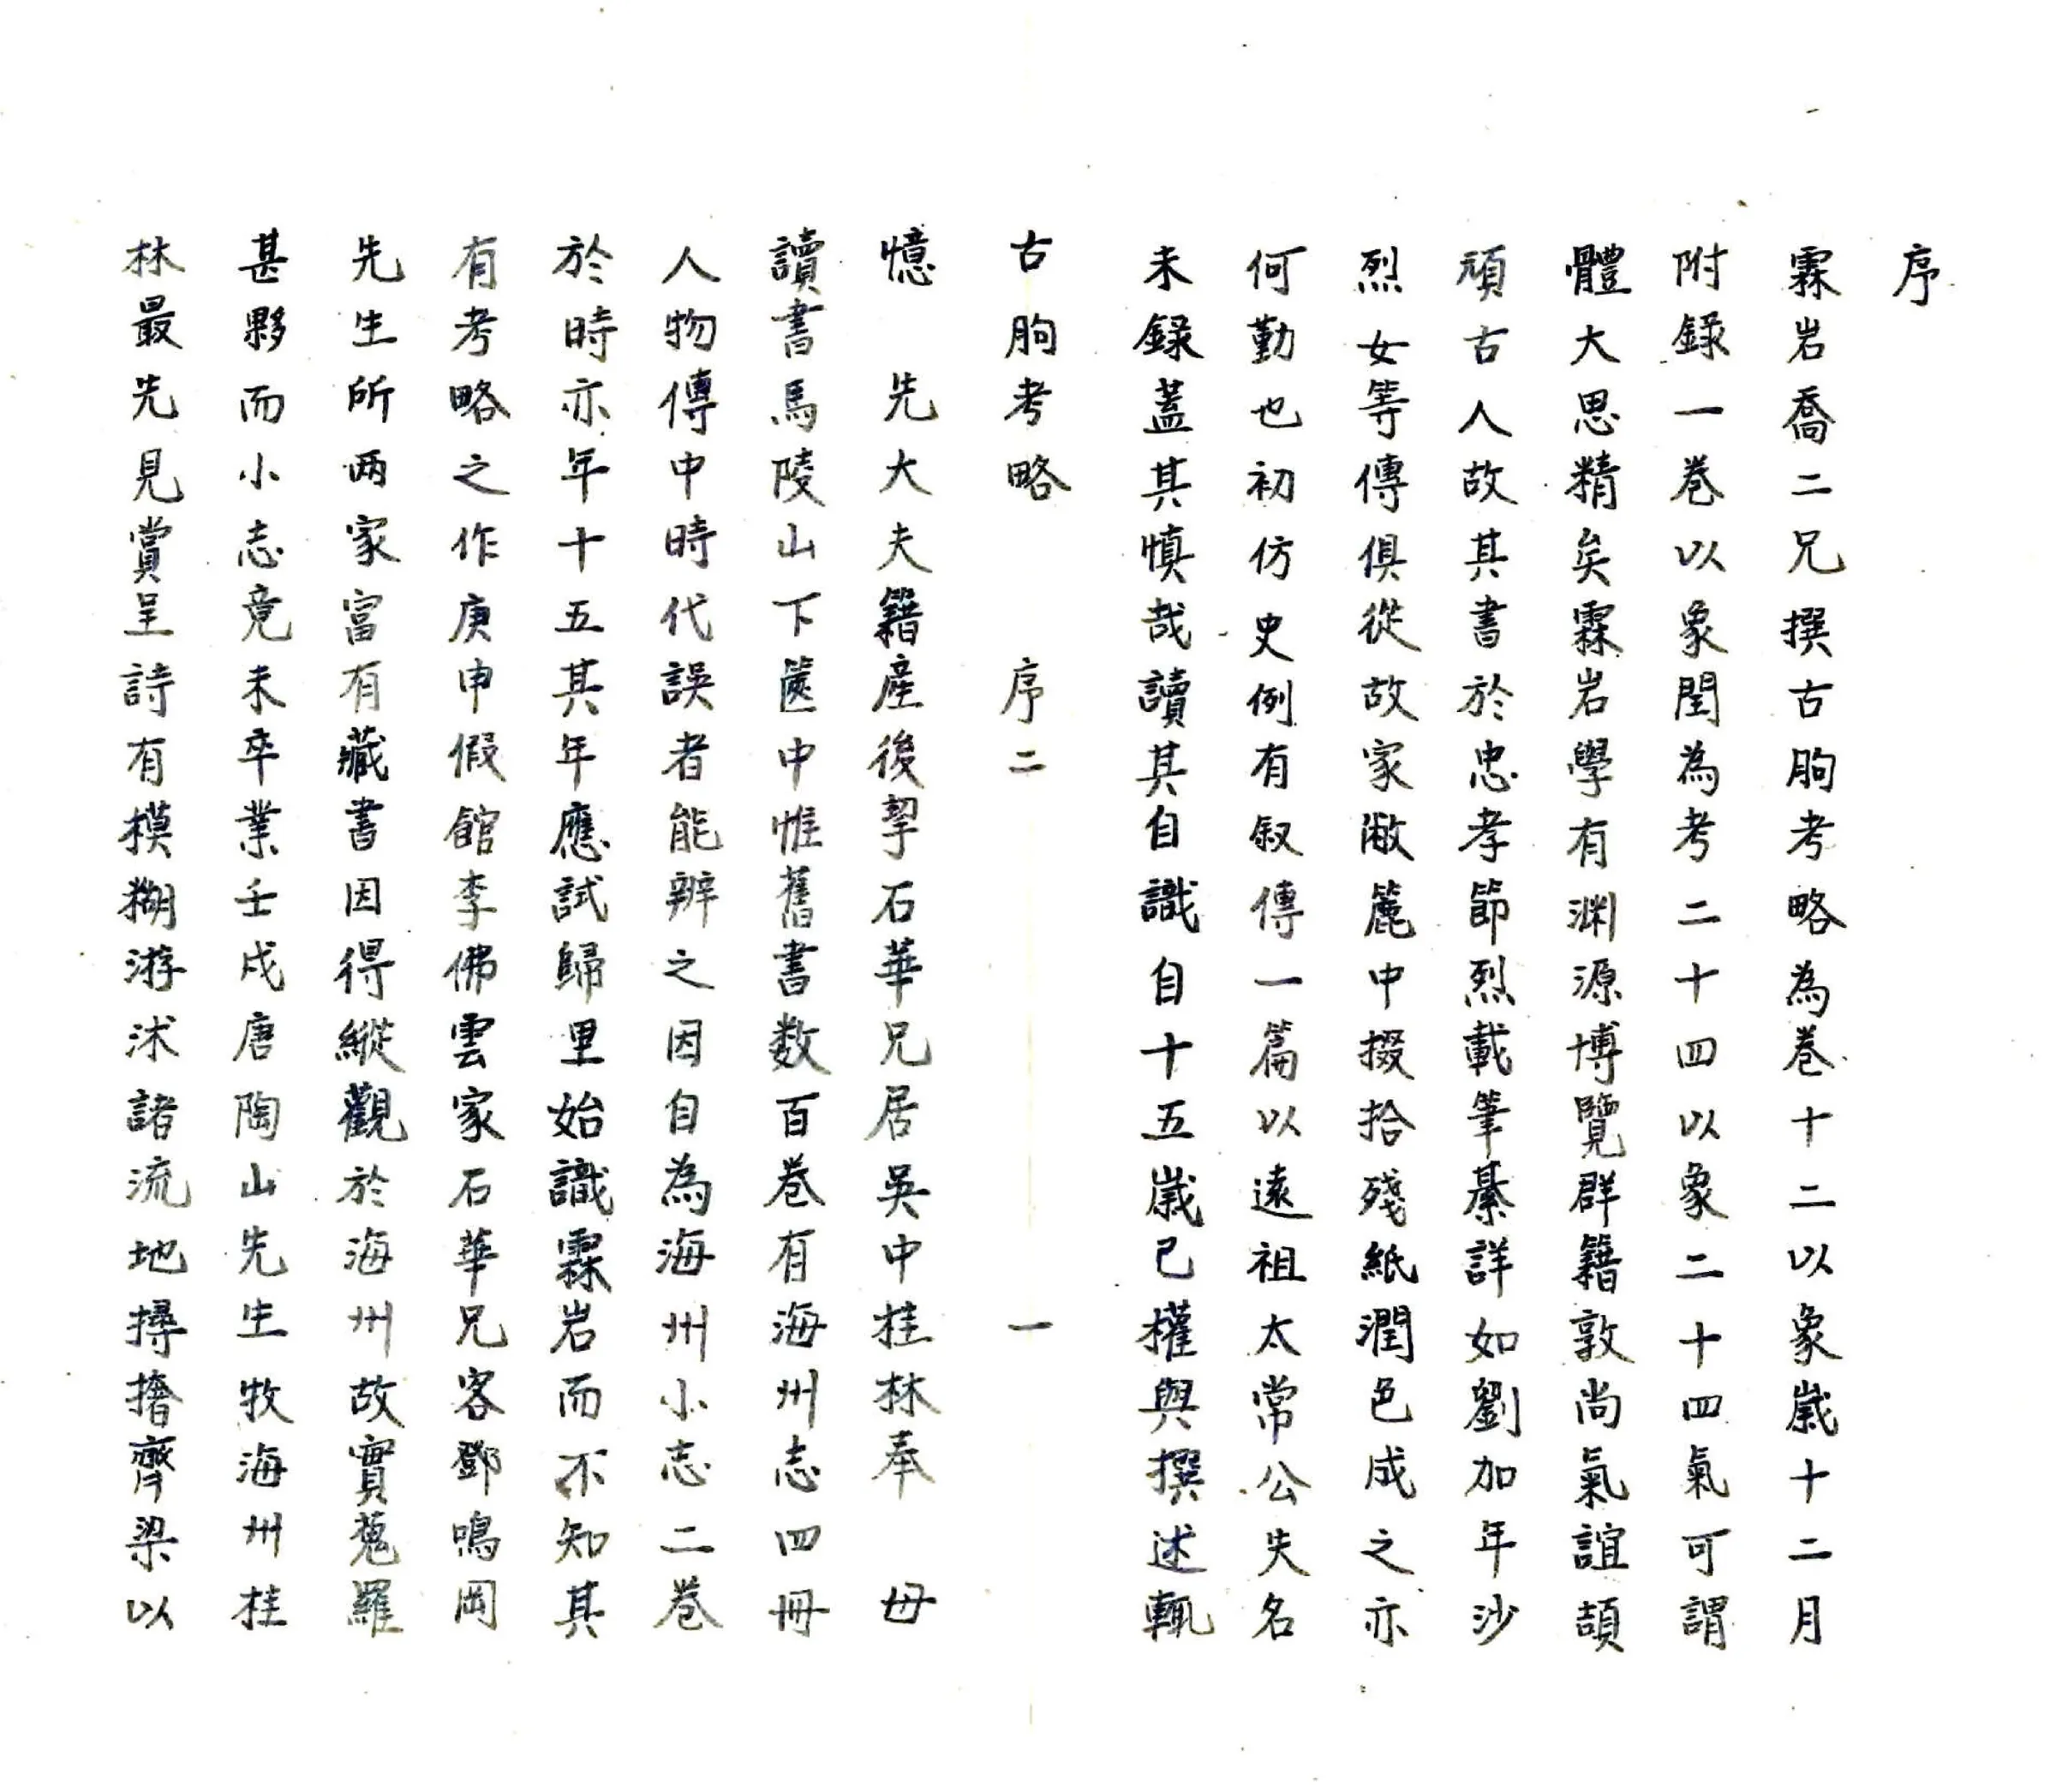 序
霖岩喬二兄撰古朐考略為卷十二以象歲十二月
附錄一卷以象閏為考二十四以象二十四氣可謂
體大思精矣霖岩學有渊源博覽群籍敦尚氣誼頡
頏古人故其書於忠孝節烈載筆綦詳如劉加年沙
烈女等傳俱從故家敝簏中掇拾殘紙潤色成之亦
何勤也初仿史例有叙傳一篇以遠祖太常公失名
未録蓋其慎哉讀其自識自十五歲已權輿撰述輒
古朐考略 序二 一
憶 先大夫籍產後挈石華兄居吳中桂林奉 母
讀書馬陵山下篋中惟舊書数百卷有海州志四冊
人物傳中時代誤者能辨之因自為海州小志二卷
於時亦年十五其年應試歸里始識霖岩而不知其
有考略之作庚申假館李佛雲家石華兄客鄧鳴岡
先生所两家富有藏書因得縱觀於海州故實蒐羅
甚夥而小志竟未卒業壬戌唐陶山先生牧海州桂
林最先見賞呈詩有模糊游沭諸流地撏撦齊梁以